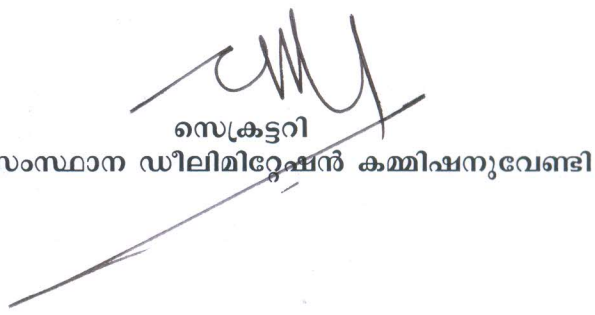 സെക്രട്ടറി
സംസ്ഥാന ഡീലിമിറ്റേഷൻ കമ്മിഷനുവേണ്ടി